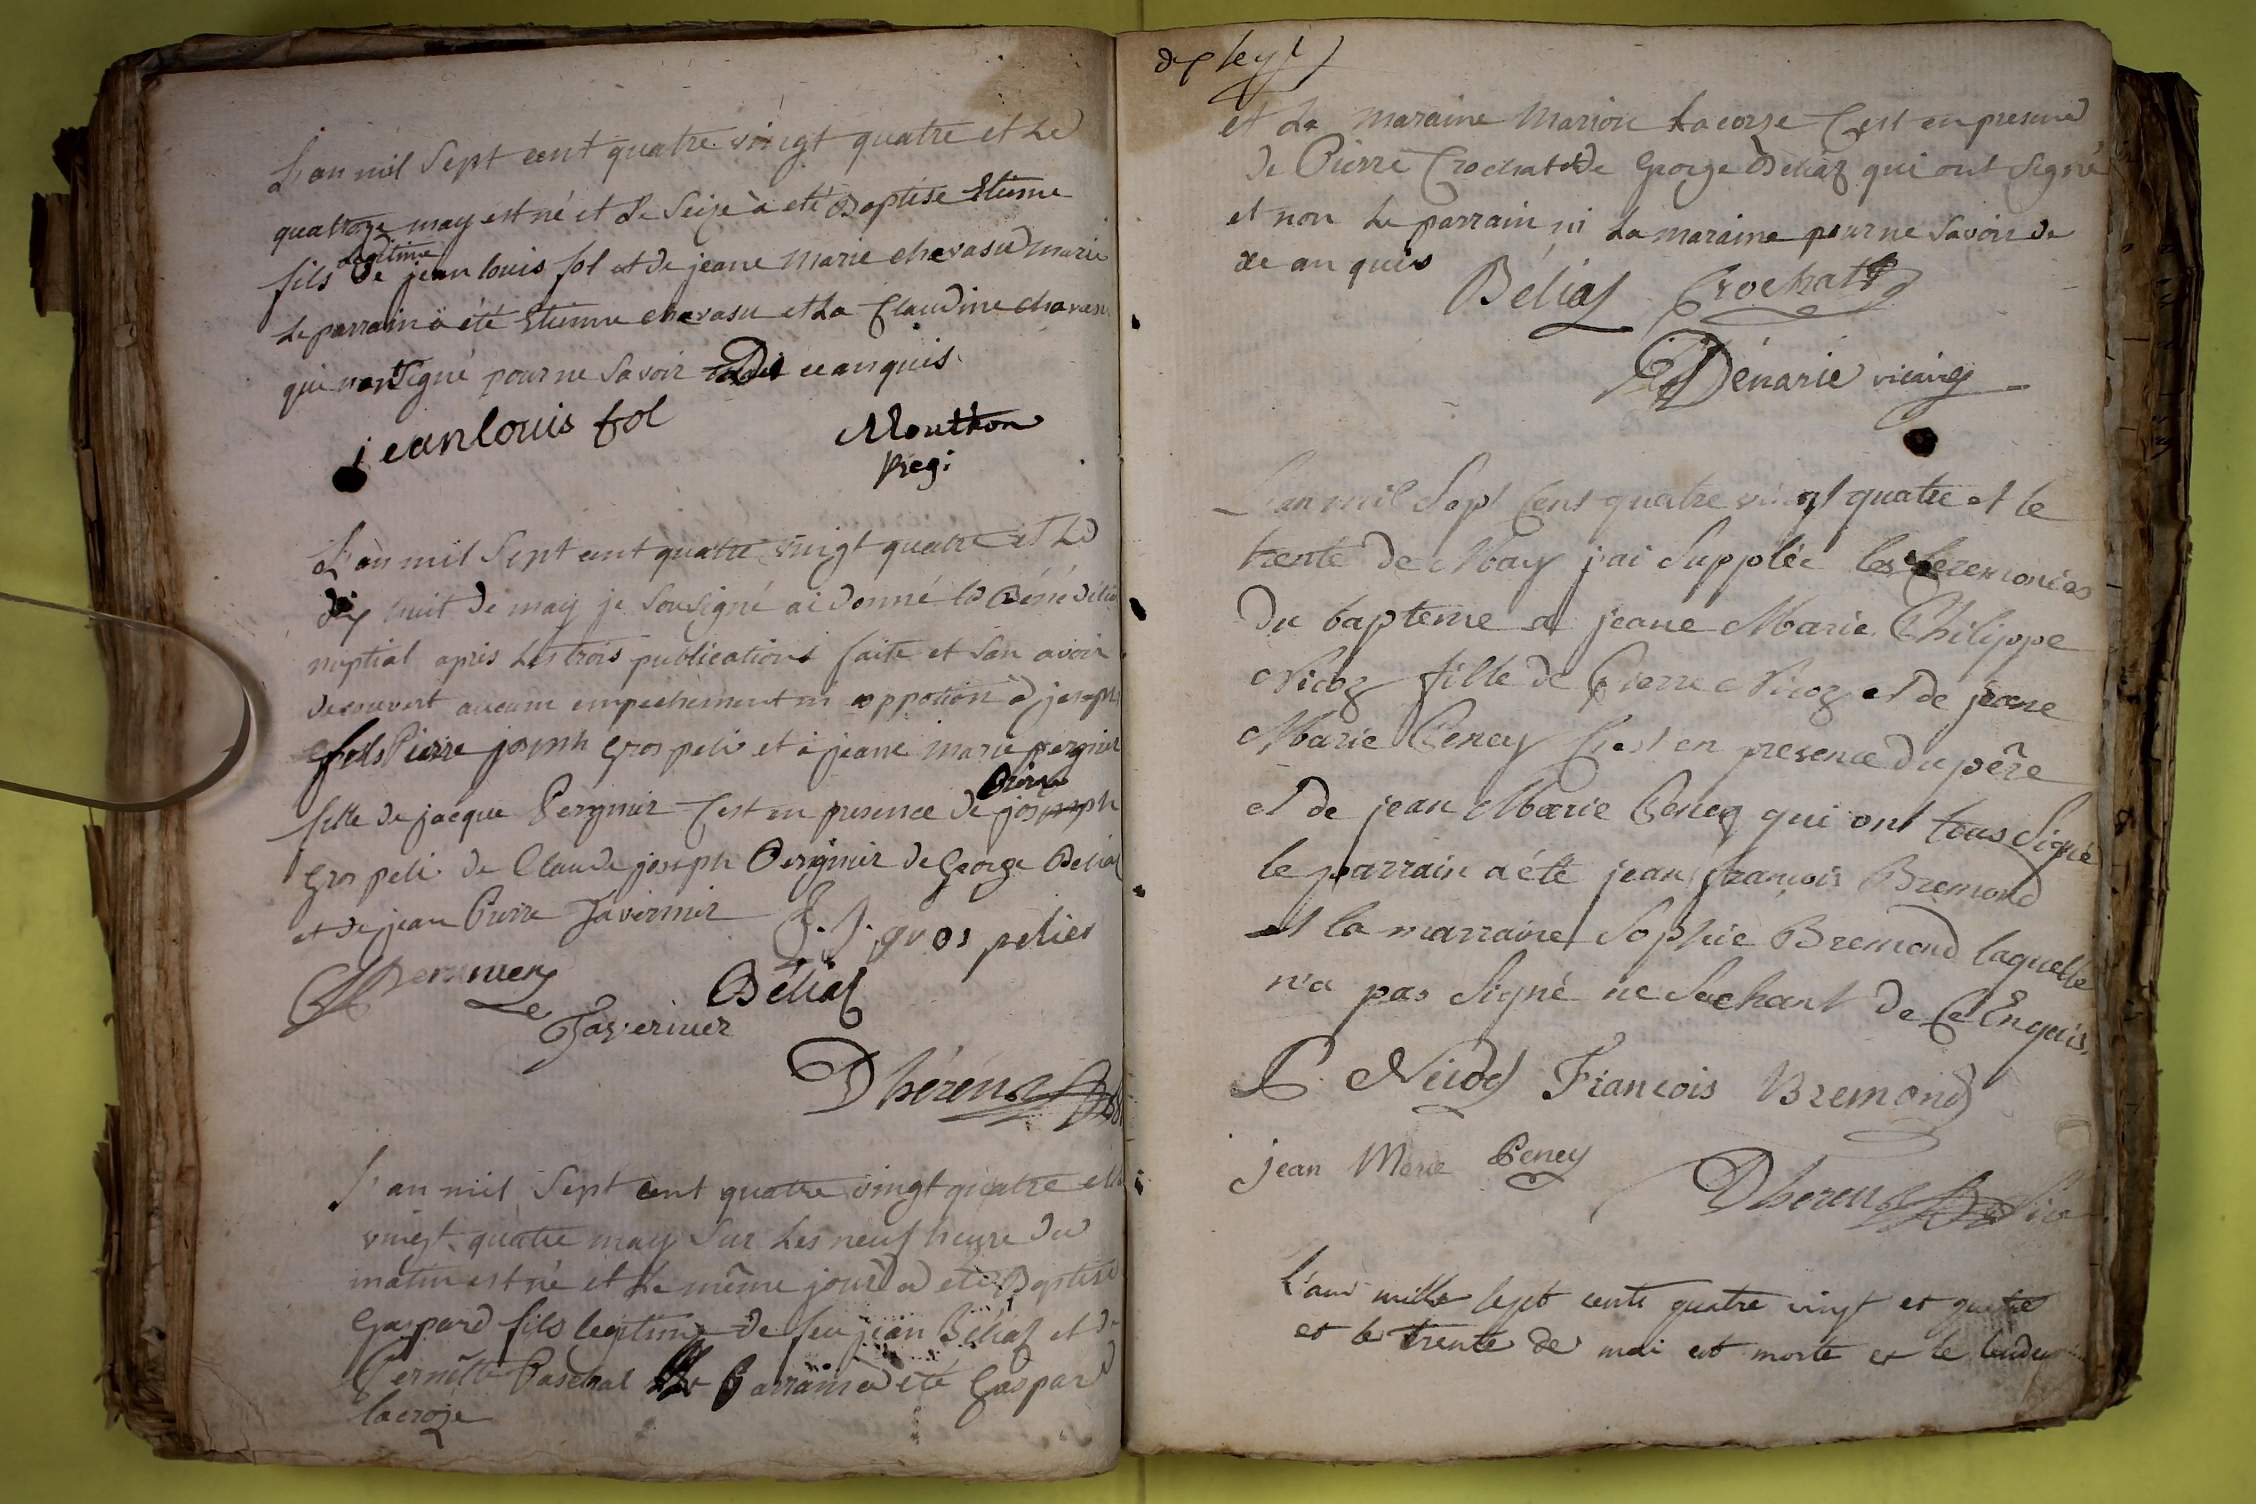 L'an mil Sept cent quatre vingt quatre et Le
quatorze may est né et Le Seize à eté Baptisé Etienne
fils Legitime de jean louis fol et de jeane Marie chavasu marié
Le parrain à été Etienne chavasu et La Claudine chavasu
qui n'ont Signé pour ne Savoir de ce anquis
jean louis fol
Mouthon
Regi:
L'an mil Sept cent quatre vingt quatre et Le
dix huit de may je Sousigné ai donné la Bénédition
nuptial après Les trois publications faite et San avoir
decouvert aucune empechement ni oppotion à joseph
fils Pierre joseph Gros peli et à jeane marie pergnier
fille de jacque Pergnier C'est en presence de Pierre joseph
Gros peli de Claude joseph Pergnier de George Béliaz
et de jean Pierre Tavernier
J. J. gros pelier
Béliaz
Tavernier
Dhéréns
L'an mil Sept cent quatre vingt quatre et le
vingt quatre may Sur Les neuf heure du
mâtin est né et Le même jour à eté Baptisé
Gaspard fils legitime de feu jean Béliaz et de
Pernêtte Paschal Le Parrain à eté Gaspard
lacroze
et La maraine Marion Lacorze C'est en presence
de Pierre Crochat et de George Béliaz qui ont Signé
et non Le parrain ni La maraine pour ne Savoir de
ce an quis
Béliaz Crochat
Dénarié vicaire
L'an mil Sept Cent quatre vingt quatre et le
trente de May j'ai Supplée les Ceremonies
du bapteme a jeane Marie Philippe
Nicoz fille de Pierre Nicoz et de jeane
Marie Peney C'est en presence du père
et de jean Marie Peney qui ont tous Signé
le parrain a été jean françois Bremond
et la marraine Sophie Bremond laquelle
n'a pas Signé ne Sachant de Ce Enquis.
P. Nicod François Bremond
jean Marie Peney
Dhéréns Vic
L'an mille sept cents quatre vingt et quatre
et le trente de mai est morte et le